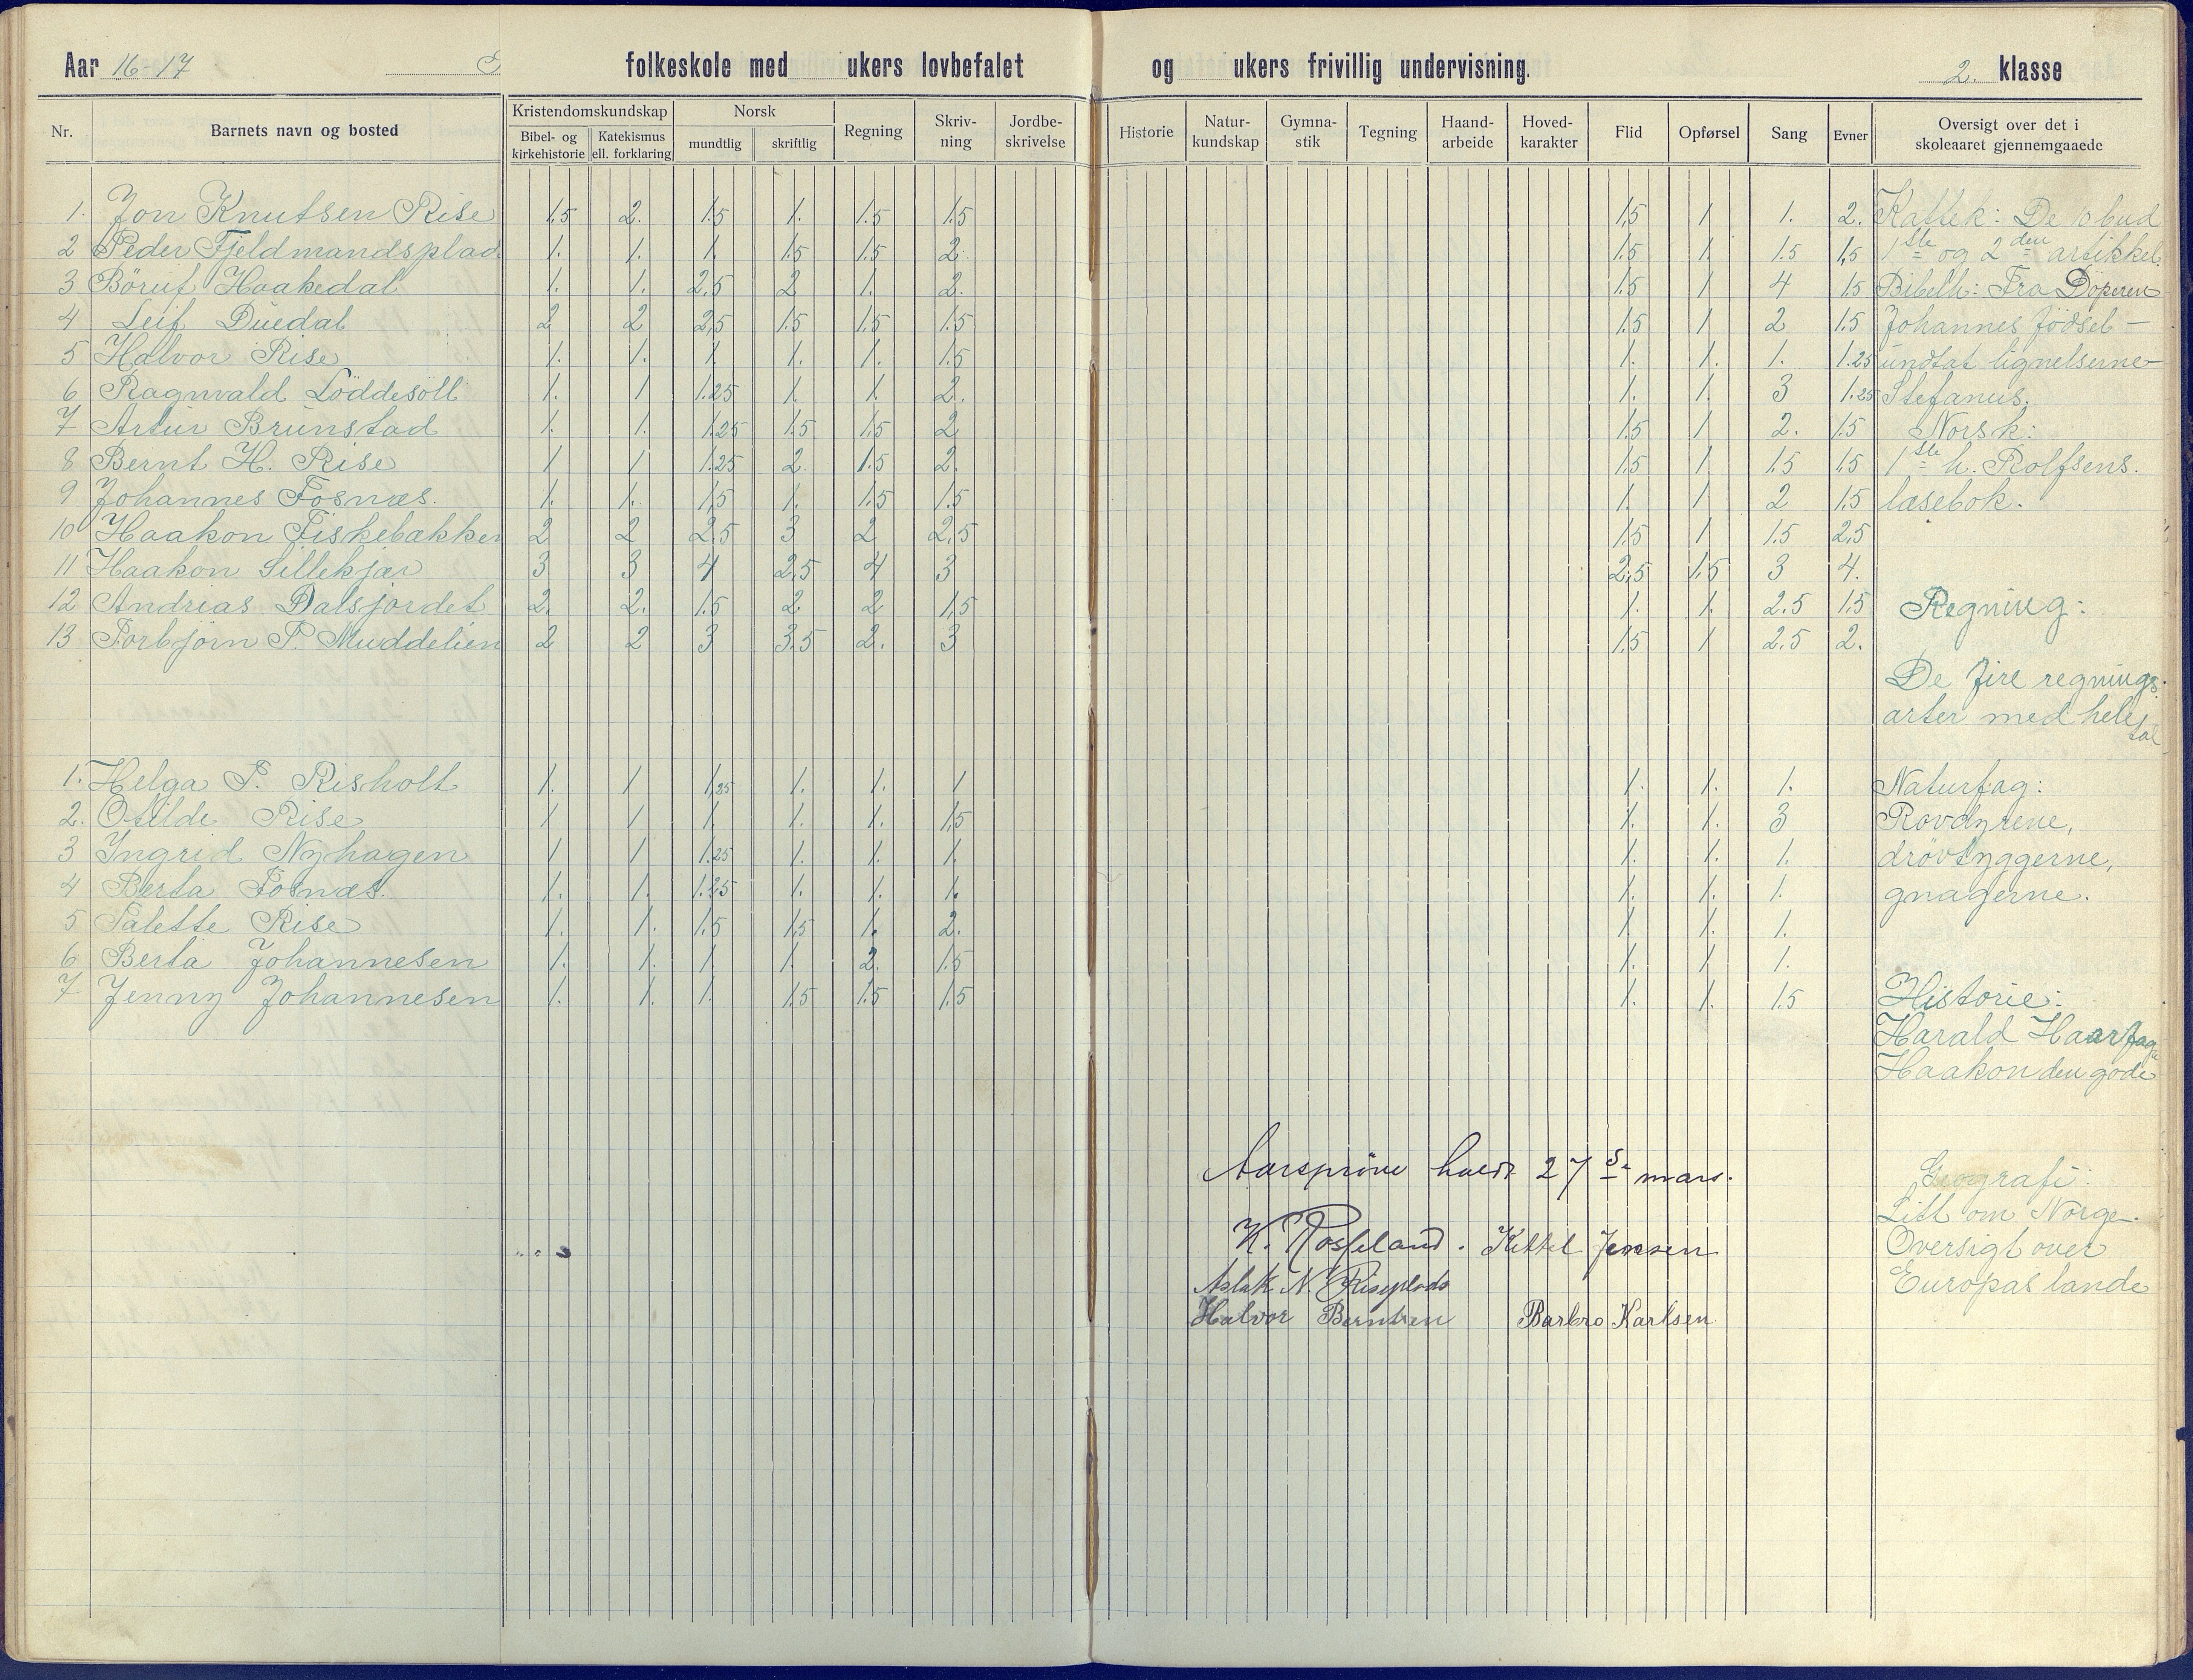 Aar 16-17 folkeskole med ukers lovbefalet og ukers frivillig undervisning. 2. klasse
Nr. Barnets navn og bosted Kristendomskundskap Bibel- og kirkehistorie Katekismus ell. forklaring Norsk mundtlig skriftlig Regning Skriv-ning Jordbe-skrivelse Historie Natur-kundskap Gymna-stik Tegning Haand-arbeide Hoved-karakter Flid Opførsel Sang Evner Oversigt over det i skoleaaret gjennemgaaede
1. Jon Knutsen Rise 1.5 2. 1.5 1. 1.5 1.5 1.5 1 1. 2. Kattek: De 10 bud
2 Peder Fjeldmandsplad 1. 1. 1. 1.5 1.5 2. 1.5 1. 1.5 1,5 1ste og 2den artikkel.
3 Börut Haakedal 1. 1. 2,5 2 1. 2. 1.5 1 4 1.5 Bibelh: Fra Döperen
4 Leif Duedal 2 2 2,5 1.5 1.5 1.5 1.5 1 2 1.5 Johannes födsel —
5 Halvor Rise 1. 1. 1. 1. 1. 1.5 1. 1. 1. 1.25 undtat lignelserne —
6 Ragnvald Löddesöll 1. 1 1.25 1. 1. 2. 1. 1. 3 1.25 Stefanus.
7 Artur Brunstad 1. 1. 1.25 1.5 1.5 2 1.5 1 2. 1.5 Norsk:
8 Bernt H. Rise 1 1 1.25 2. 1.5 2. 1.5 1 1.5 1.5 1ste h. Rolfsens.
9 Johannes Fosnæs. 1. 1. 1,5 1. 1.5 1.5 1. 1 2 1.5 læsebok.
10 Haakon Fiskebækken 2 2 2.5 3 2 2,5 1.5 1 1.5 2,5
11 Haakon Lillekjær 3 3 4 2,5 4 3 2,5 1.5 3 4.
12 Andrias Dalsjordet 2. 2. 1.5 2 2 1,5 1. 1. 2.5 1.5 Regning:
13 Torbjörn P. Muddelien 2 2 3 3.5 2. 3 1.5 1 2.5 2.
De fire regnings-
arter med hele
tal
1. Helga P. Risholt 1. 1 1,25 1. 1. 1 1. 1. 1. Naturfag:
2. Otilde Rise 1 1 1. 1. 1. 1.5 1. 1. 3 Rovdyrene,
3 Ingrid Nyhagen 1 1 1.25 1. 1. 1. 1. 1. 1. drövtyggerne,
4 Berta Fosnæs. 1. 1. 1.25 1. 1. 1. 1. 1. 1. gnagerne.
5 Talette Rise 1. 1. 1.5 1.5 1. 2. 1. 1. 1.
6 Berta Johannesen 1. 1. 1 1. 2. 1.5 1. 1 1.
7 Jenny Johannesen 1. 1. 1. 1.5 1.5 1.5 1. 1. 1.5 Historie:
Harald Haarfagre
Haakon den gode
Aarspröve holdt 27de mars.
Geografi:
Litt om Norge.
K. Rosseland. Kittel Jensen
Oversigt over
Aslak N. Riseplads
Europas lande
Halvor Berntsen Barbro Karlsen